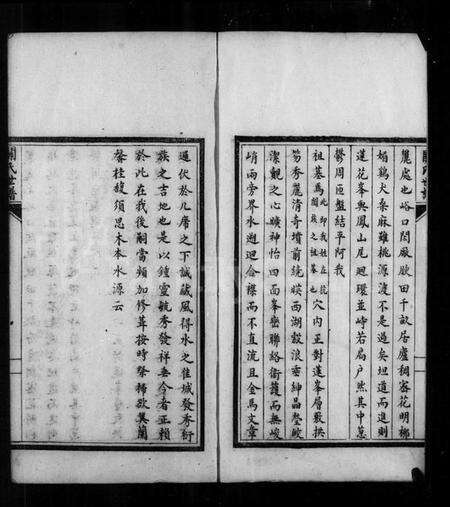 麓處也峪口閎厰欵田千畝居廬稠密花明柳
媚鷄犬桑麻雖桃源渡不是過矣坦道而進則
蓮花峯與鳳山尾廻環並峙若扃户然其中蔥
鬱周匝盤結平阿我
祖基焉 穴内正對蓮峯層數拱
笏秀麗清奇墳前繞暎西湖縠浪垂紳晶瑩皎
潔觀之心曠神怡四面峯巒聯絡衛護而無峻
峭兩旁界水迴合襟而不直流且金馬文章
遍伏於几席之下誠藏風得水之佳城發秀衍
族之吉地也是以鐘靈毓秀發祥至今者正賴
於此在我後嗣當頻加修葺按時祭掃欲其蘭
馨桂馥須思木本水源云